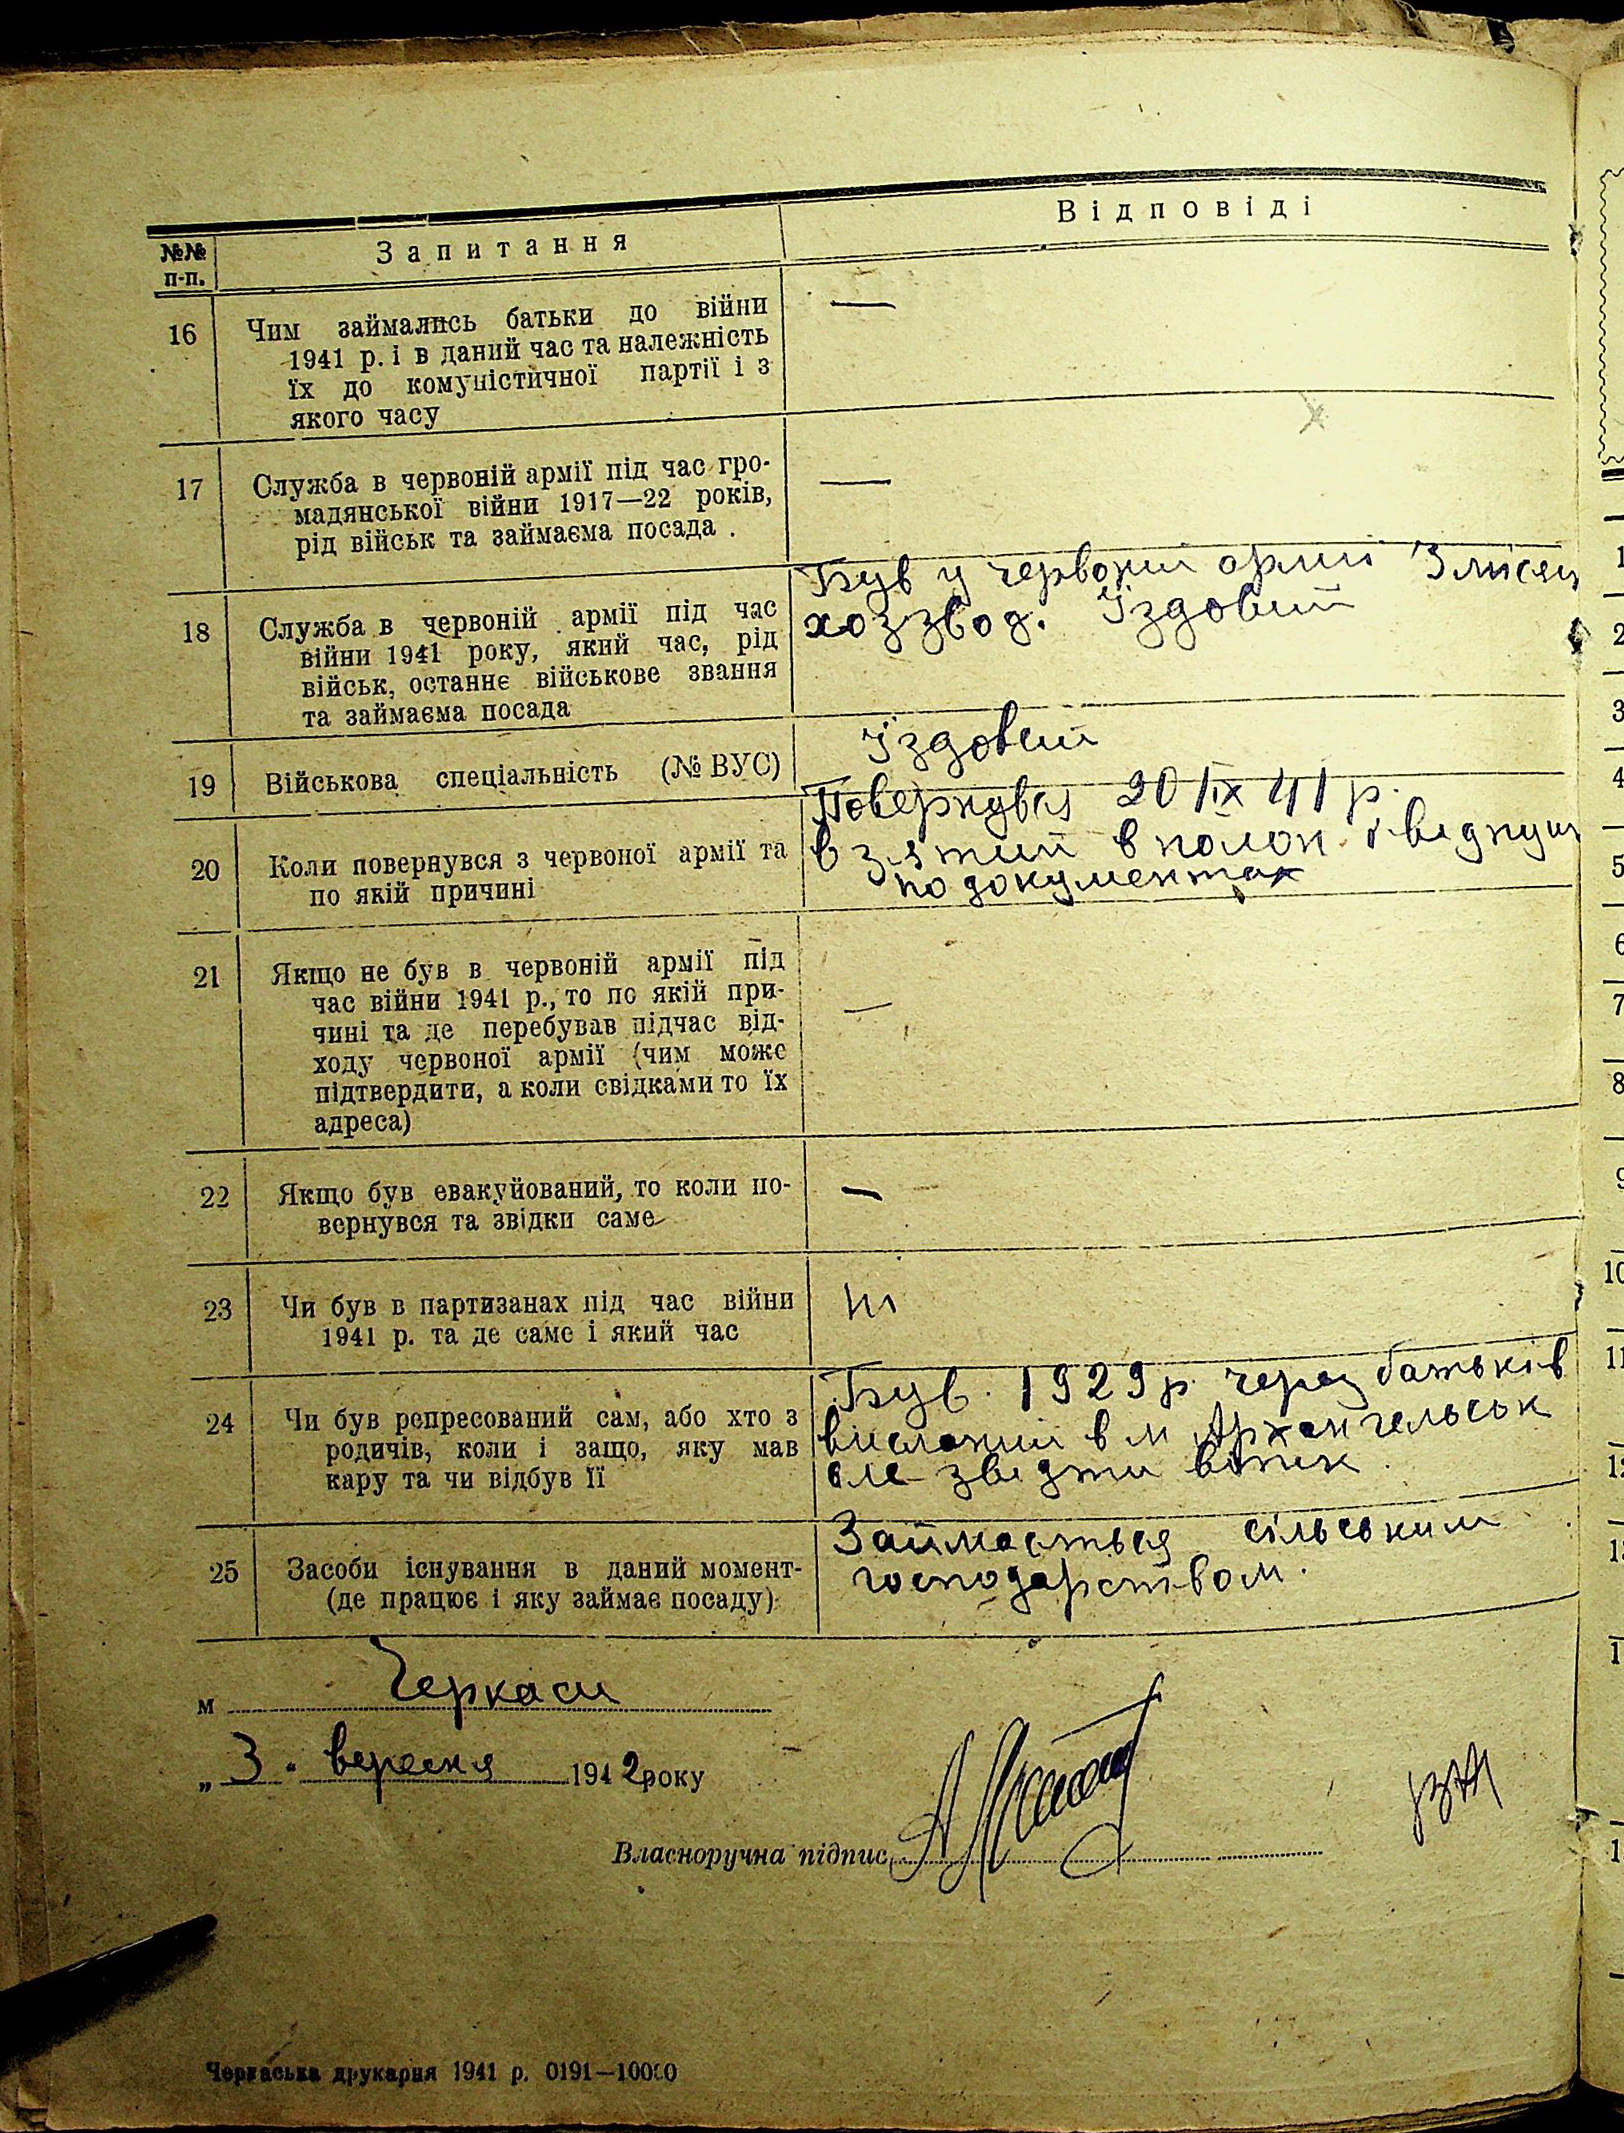 №№ п-п.
Запитання
Відповіді
16
Чим займались батьки до війни
1941 р. і в даний час та належність
їх до комуністичної партії і з
якого часу
—
17
Служба в червоній армії під час гро-
мадянської війни 1917—22 років,
рід військ та займаєма посада .
—
18
Служба в червоній армії під час
війни 1941 року, який час, рід
військ, останнє військове звання
та займаєма посада
Був у червоній армії 3 місяц
хоззвод. Їздовий
19
Військова спеціальність (№ ВУС)
Їздовий
20
Коли повернувся з червоної армії та
по якій причині
Повернувся 20/ІХ 41 р.
взятий в полон і відпущ
по документах
21
Якщо не був в червоній армії під
час війни 1941 р., то по якій при-
чині та де перебував підчас від-
ходу червоної армії (чим може
підтвердити, а коли свідками то їх
адреса)
—
22
Якщо був евакуйований, то коли по-
вернувся та звідки саме
—
23
Чи був в партизанах під час війни
1941 р. та де саме і який час
Ні
24
Чи був репресований сам, або хто з
родичів, коли і защо, яку мав
кару та чи відбув її
Був. 1929 р. через батьків
висланий в м Архангельськ
але звідти втік.
25
Засоби існування в даний момент-
(де працює і яку займає посаду)
Займається сільським
господарством.
м Черкаси
„ 3 " вересня 1942 року
Власноручна підпис
Черкаська друкарня 1941 р. 0191—10000
1
2
3
4
5
6
7
8
9
10
11